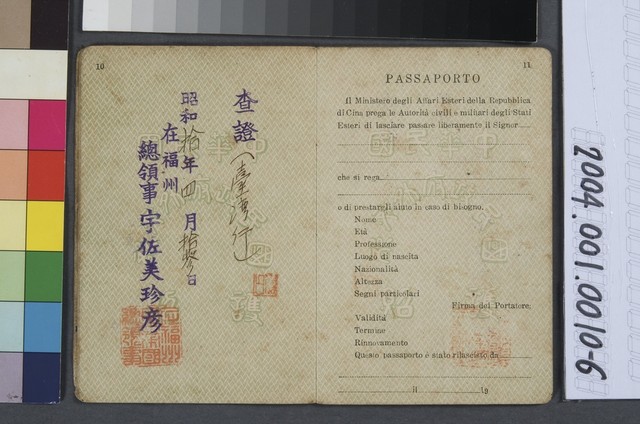 10
查證(臺灣行)
昭和拾年四月拾參日
在福州
總領事宇佐美珍彥
11
PASSAPORTO
Il Ministero degli Affari Esteri della Repubblica
di Cina prega le Autorità civili e militari degli Stati
Esteri di lasciare passare liberamente il Signor
che si rega
e di prestargli aiuto in caso di bisogno.
Nome
Età
Professione
Luogo di nascita
Nazionalità
Altezza
Segni particolari
Firma del Portatore:
Validità
Termine
Rinnovamento
Questo passaporto è stato rilasciato da
il
19
中華民國
護
2004.001.0010-6